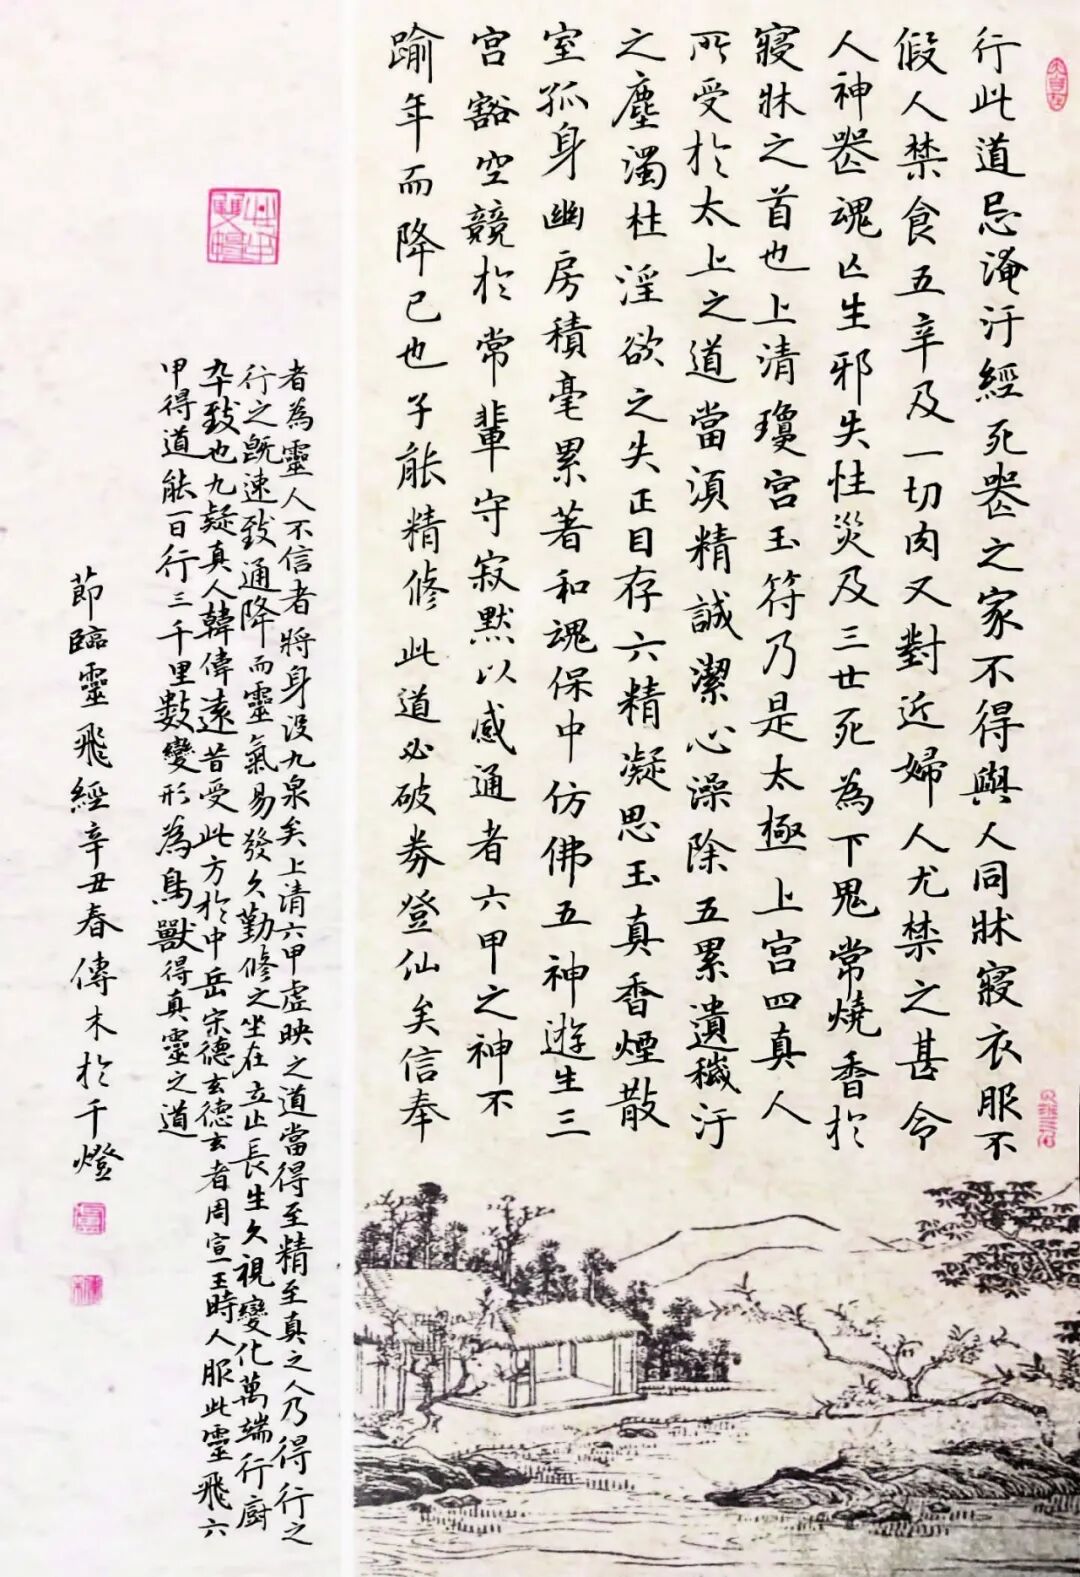 行此道忌淹汙經死器之家不得與人同牀寢衣服不
假人禁食五辛及一切肉又對近婦人尤禁之甚令
人神器魂亾生邪失性災及三世死為下鬼常燒香於
寢牀之首也上清瓊宮玉符乃是太極上宮四真人
所受於太上之道當湏精誠潔心澡除五累遺穢汙
之塵濁杜淫欲之失正目存六精凝思玉真香煙散
室孤身幽房積毫累著和魂保中仿佛五神遊生三
宮豁空競於常輩守寂默以感通者六甲之神不
踰年而降已也子能精修此道必破券登仙矣信奉
者為靈人不信者將身沒九泉矣上清六甲虛映之道當得至精至真之人乃得行之
行之既速致通降而靈氣易發久勤修之坐在立止長生久視變化萬端行廚
卒致也九疑真人韓偉遠昔受此方於中岳宋德玄德玄者周宣王時人服此靈飛六
甲得道能一日行三千里數變形為鳥獸得真靈之道
節臨靈飛經辛丑春傳木於千燈